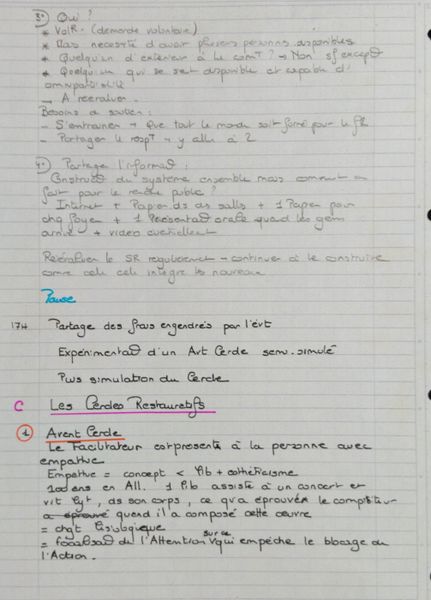 3° Qui ?
* Volr. (demande volontaire)
* Pas nécessité d'avoir plusieurs personnes disponibles
* Quelqu'un d'extérieur à le comT ? → Non sf except
* Quelqu'un qui se sent disponible et capable d'
omnipartialité
→ A réévaluer.
Besoins de soutien :
- S'entrainer → Que tout le monde soit formé pour le
- Partager le respT → y aller à 2
4° Partage l'informat° :
Construct° du système ensemble mais comment on
fait pour le rendre public ?
Internet + Papier ds des salles + 1 Papier pour
chq foyer + 1 Présentat° orale quand les gens
arrive + video éventuellemt
Réévaluer le SR régulièrement → continuer à le construire
comme cela cela intègre les nouveaux
Pause
17H Partage des frais engendrés par l'évt
Expérimentat° d'un Avt Cercle semi-simulé
Puis simulation du Cercle
C Les Cercles Restauratifs
1 Avant Cercle
Le Facilitateur est présent à la personne avec
empathie
Empathie = concept < + esthéticisme
100 ans en All. 1 assiste à un concert et
vit, ds son corps, ce qu'a éprouvé le compositeur
a éprouvé quand il a composé cette oeuvre
= chgt
= focalisat° de l'Attention sur ce qui empêche le blocage de
l'Action.